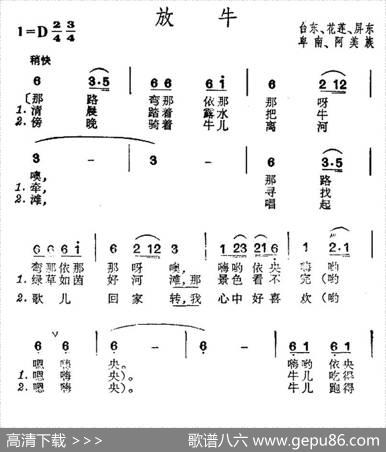 放 牛
1=D 2/4 3/4
台东、花莲、屏东
卑南、阿美族
稍快
6 3·5 6 6 6 i 6 2 12
〔那 路 弯那 依那 那 呀
1. 清 晨 踏着 露水 把 牛
2. 傍 晚 骑着 牛儿 离 河
3 - 3 - 6 3·5
噢, 那 路
1. 牵, 寻 找
2. 滩, 唱 起
6 6 6 i 6 2 12 3 1 23 216 1 2·1
弯那依那 那 呀 噢, 嗨哟依央 嗨 哟
1. 绿草如茵 好 河 滩,那 景色看不 完(哟
2. 歌 儿 回 家 转,我 心中好喜 欢(哟
6 6 6 - 6 - 6 1 6 1
嗯 嗨 央)。 嗨哟 依央
1. 嗯 嗨 央)。 牛儿 吃得
2. 嗯 嗨 央)。 牛儿 跑得
高清下载 >>> 歌谱八六 www.gepu86.com